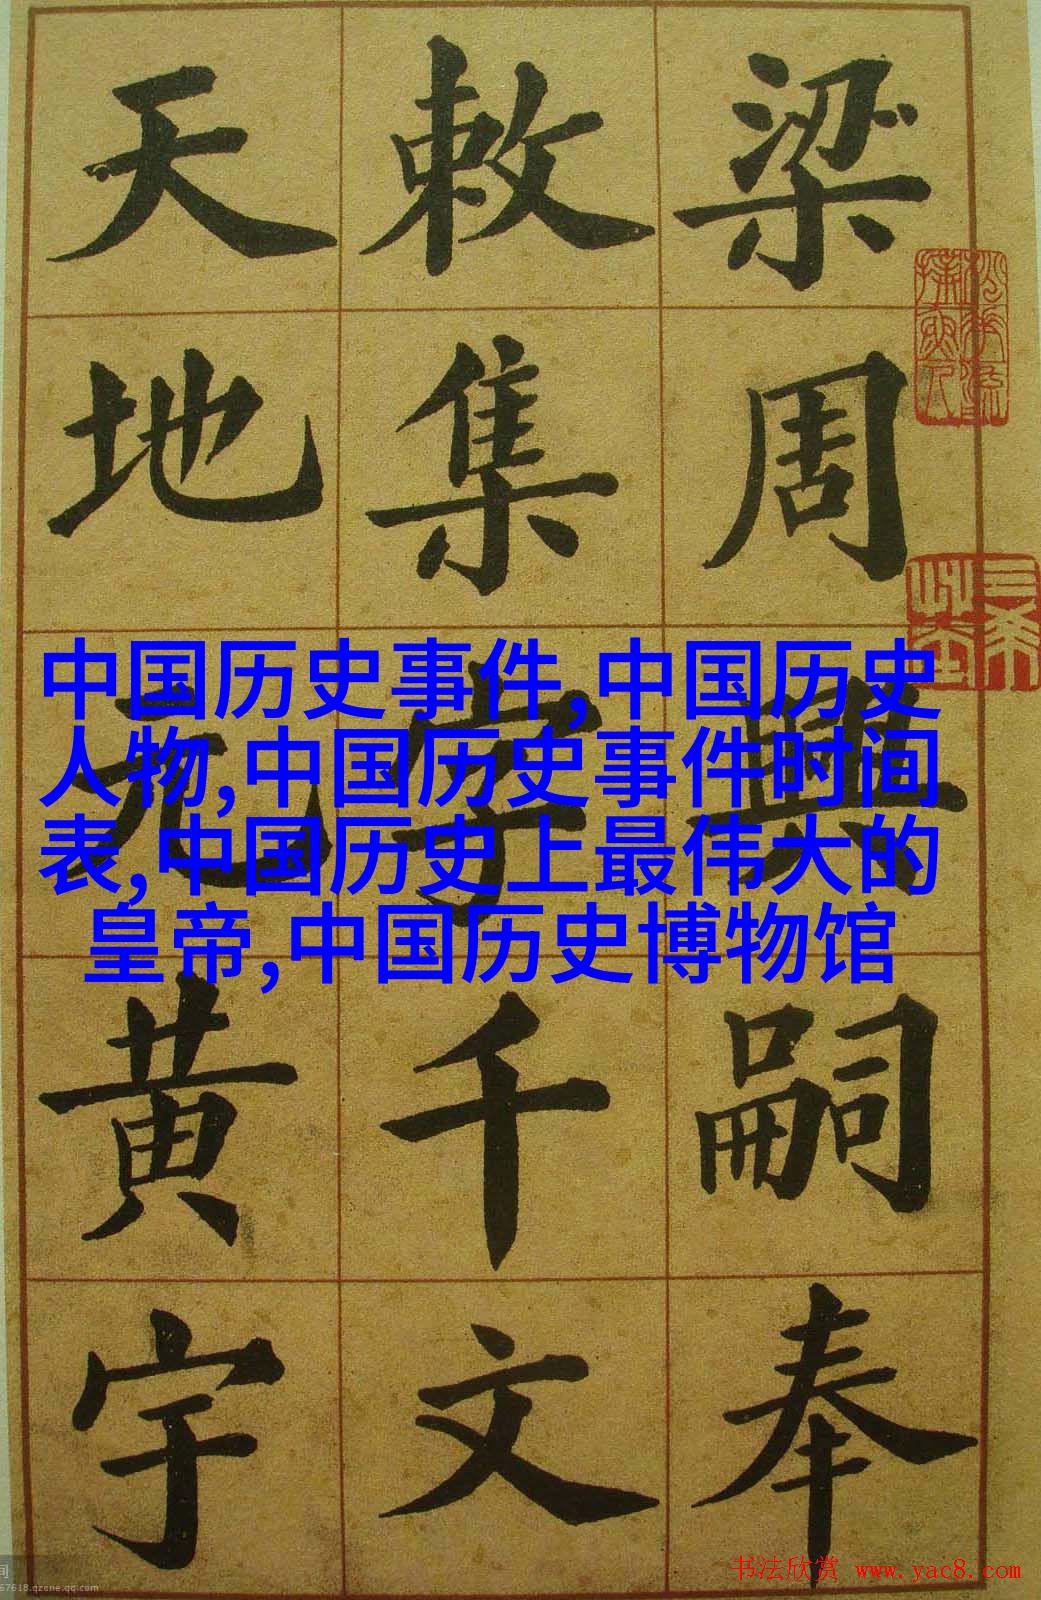 梁周興嗣奉
敕集字千文
天地元黄宇
中国历史事件,中国历史
人物,中国历史事件时间
表,中国历史上最伟大的
皇帝,中国历史博物馆
书法欣赏 www.yac8.com
67618.qzone.qq.com